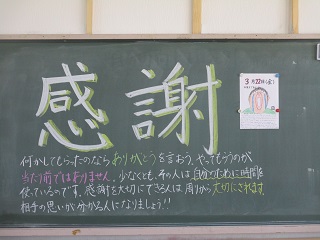 感謝
3月22日(金)
何かしてもらったのなら ありがとう を言おう。やってもらうのが
当たり前ではありません。少なくとも、その人は自分のために時間を
使っているのです。感謝を大切にできる人は 周りから 大切にされます。
相手の思いが分かる人になりましょう!!